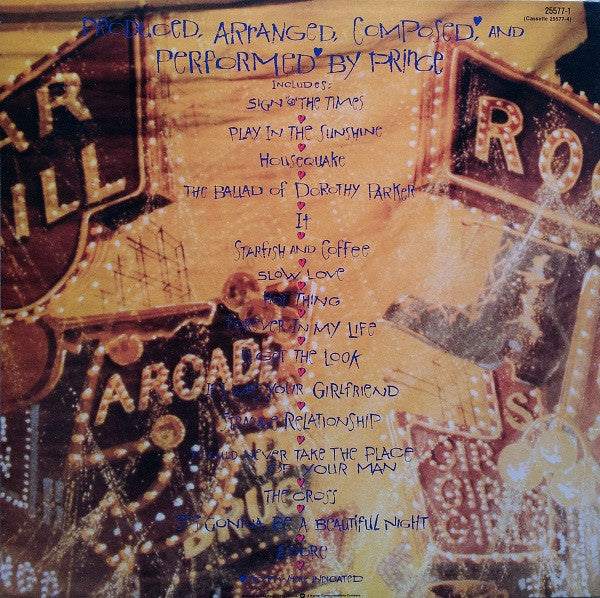 25577-1
(Cassette 25577-4)
PRODUCED, ARRANGED, COMPOSED, AND
PERFORMED BY PRINCE
INCLUDES:
SIGN THE TIMES
PLAY IN THE SUNSHINE
HOUSEQUAKE
THE BALLAD OF DOROTHY PARKER
IT
STARFISH AND COFFEE
SLOW LOVE
HOT THING
FOREVER IN MY LIFE
U GOT THE LOOK
IF I WAS YOUR GIRLFRIEND
STRANGE RELATIONSHIP
I COULD NEVER TAKE THE PLACE
OF YOUR MAN
THE CROSS
IT'S GONNA BE A BEAUTIFUL NIGHT
ADORE
INDICATED
AR
ILL
ROO
ARCADE
DRUGS
GIRLS
GIRLS